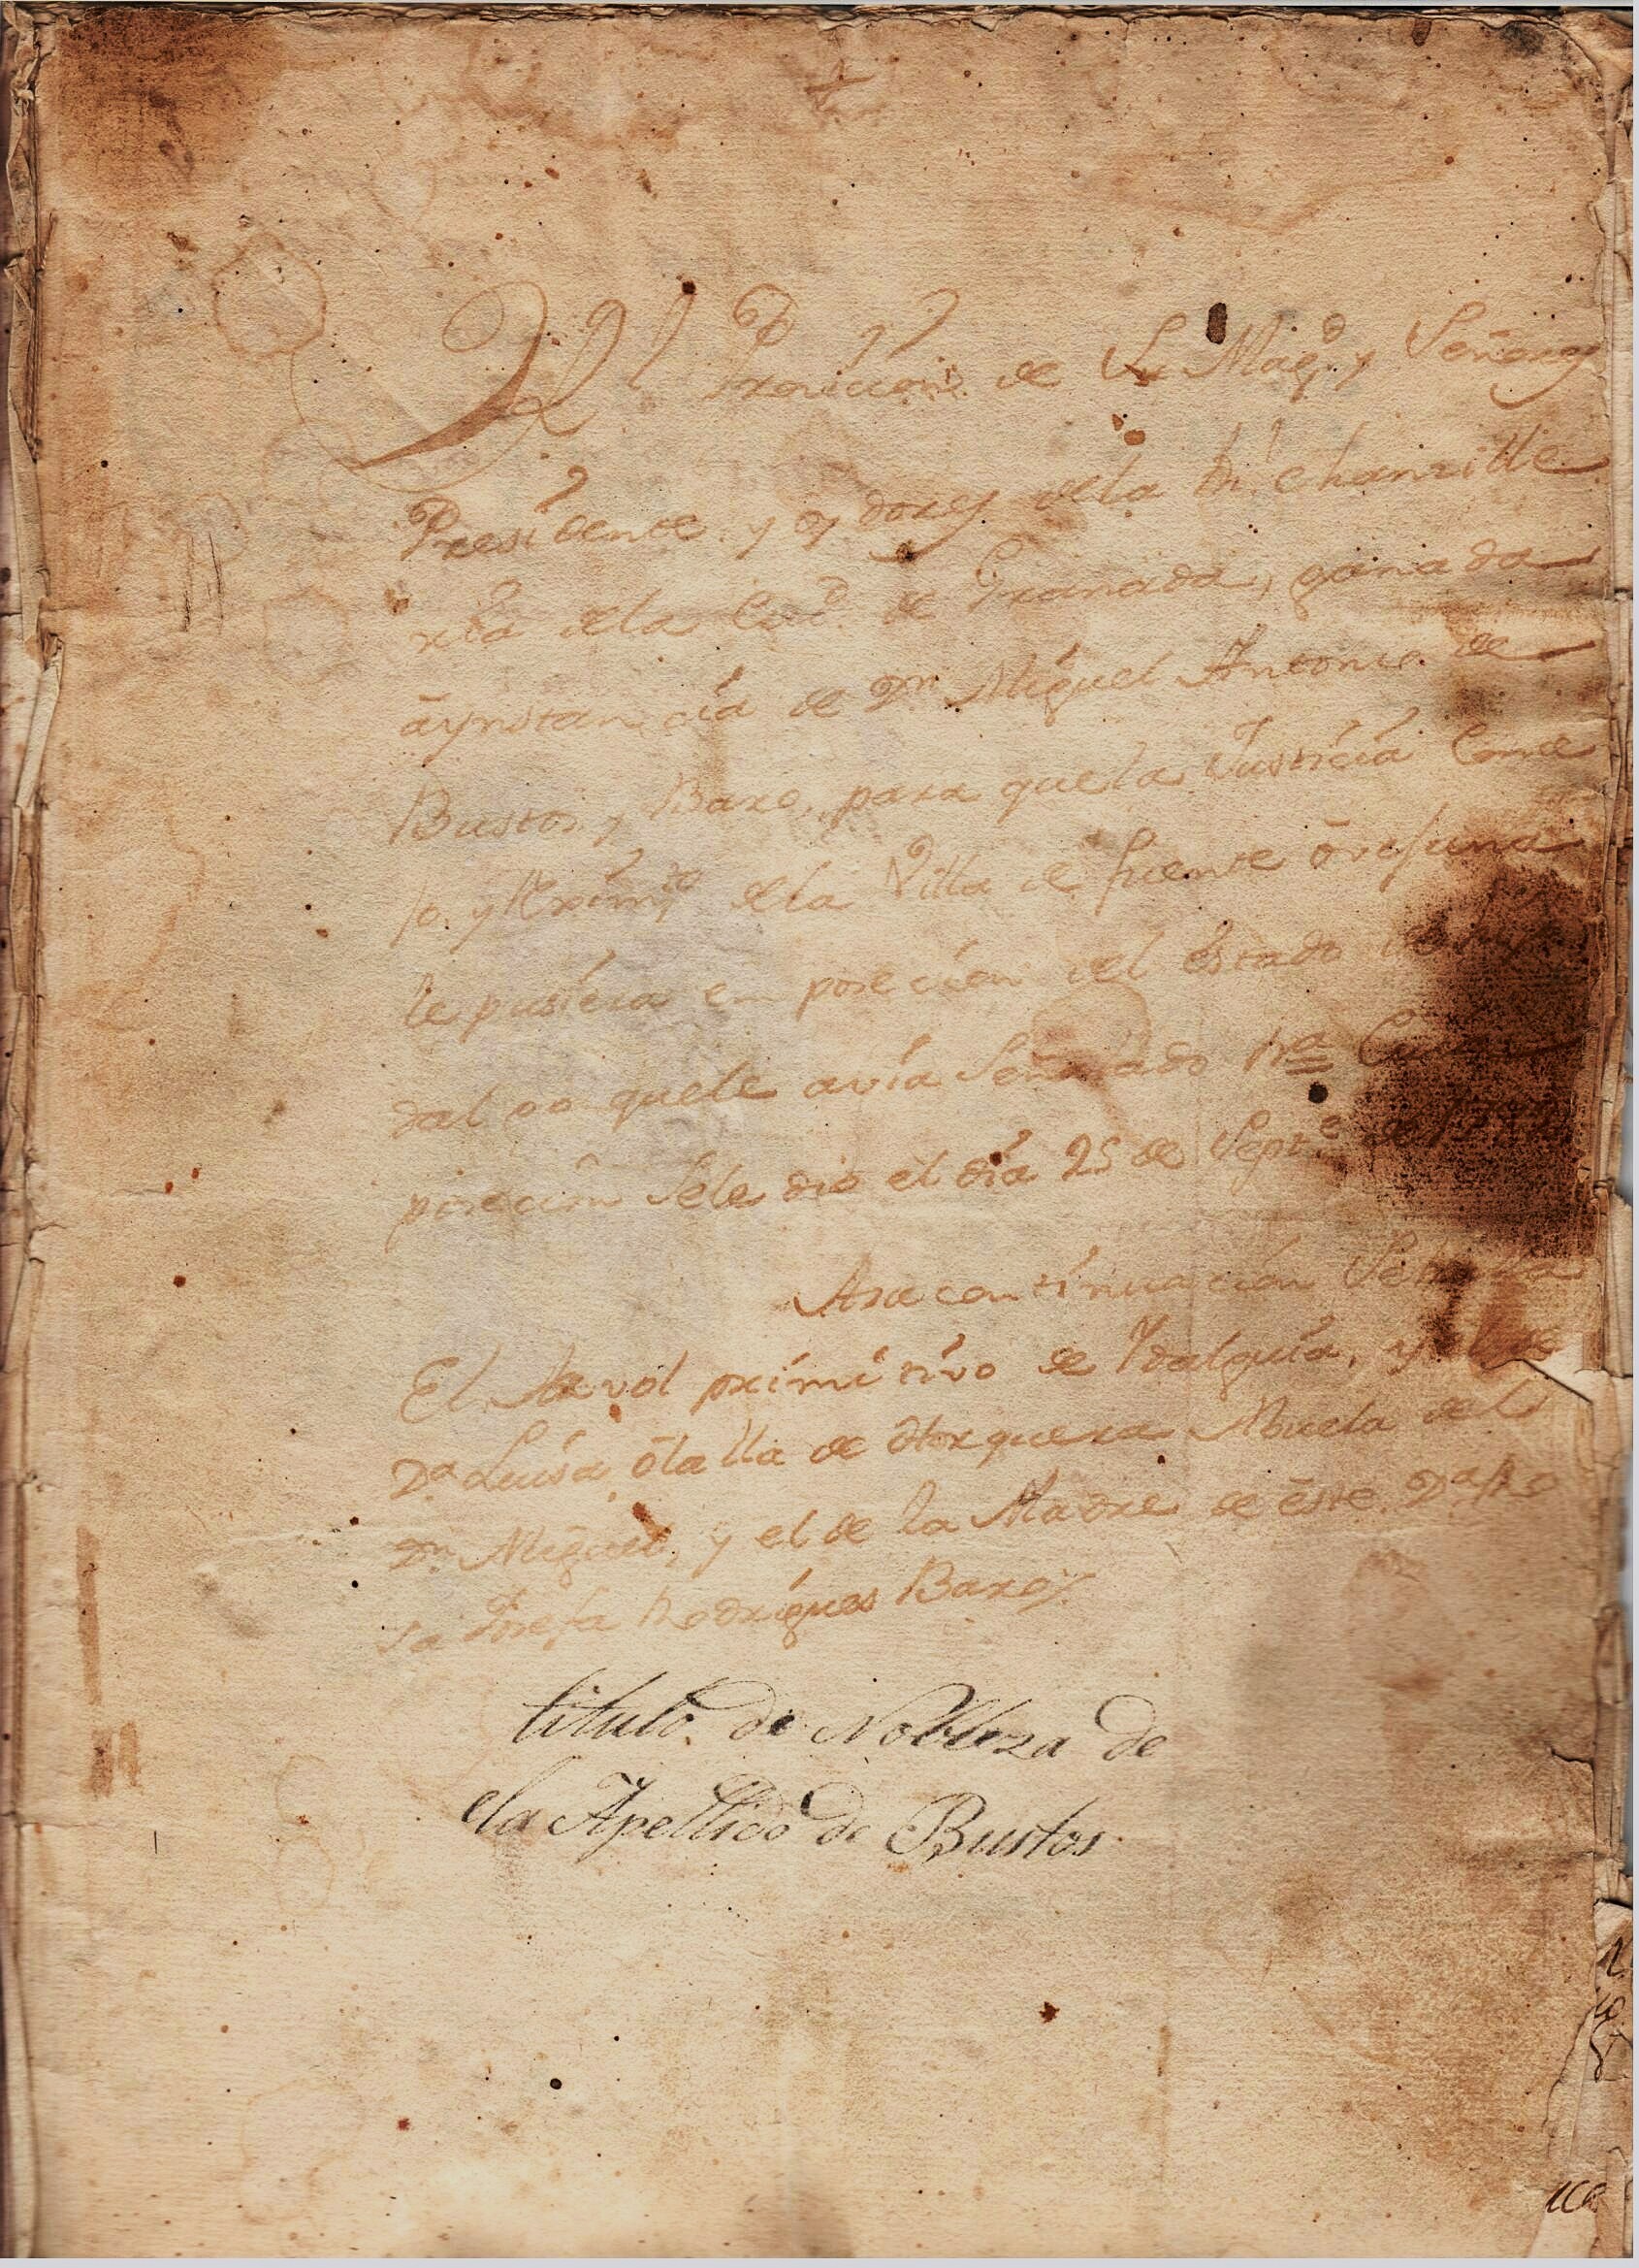 Rl Provicion de Su Magd. y Señores
Presidente y oydores dela Rl. chanzille
ria dela Ciud. de Granada, ganada
aynstancia de Dn. Miguel Antonio de
Bustos y Baro, para quela Justicia Conse
jo, y Reximto dela Villa de fuente ovejuna
le pusiera en posecion del estado
dal qe quele avia Señalado
posecion sele dio el dia 25 de Septe. de
Asu continuacion Se
El Arvol primitivo de Ydalguia, y el de
Da. Luisa olalla de Horquera Abuela del
Dn. Miguel, y el de la Madre de este, Da.
Josefa Rodriguez Baro
titulo de Nobleza de
ela Apellido de Bustos